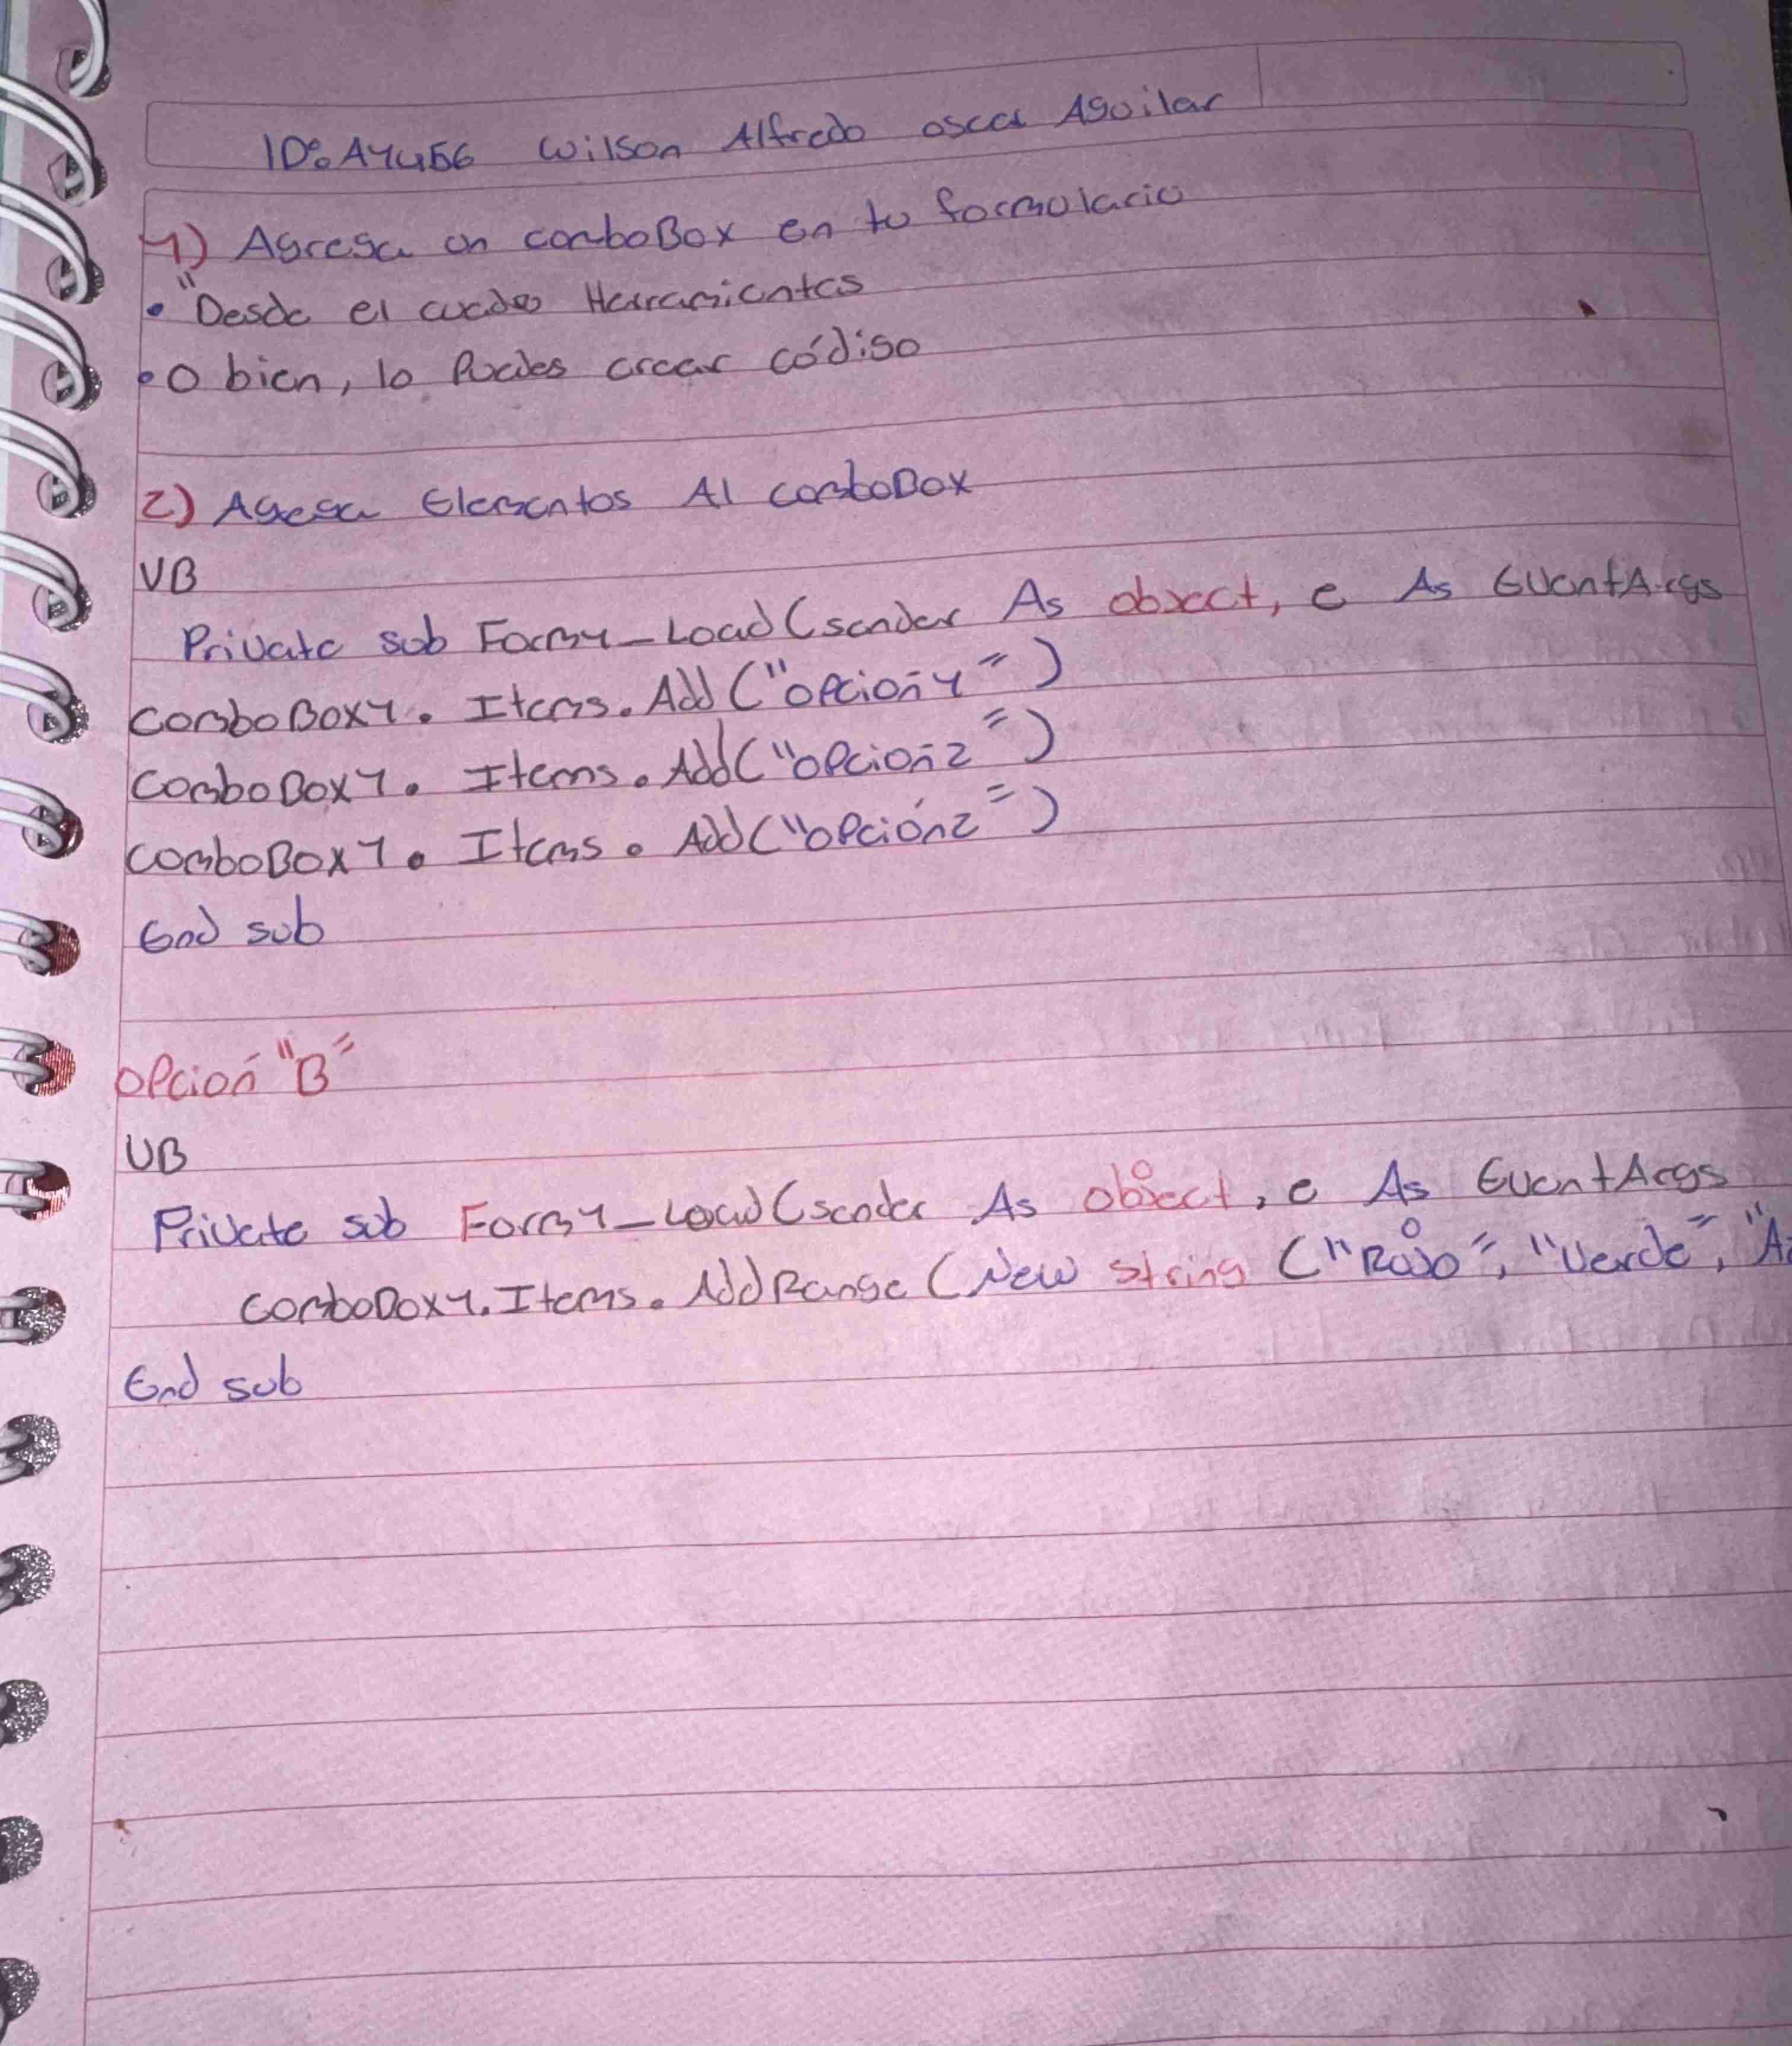 ID: A1456 Wilson Alfredo oscar Aguilar
1) Agrega un comboBox en tu formulario
• "Desde el cuadro Herramientas
• O bien, lo Puedes crear código
2) Agrega Elementos Al comboBox
VB
Private sub Form1_Load(sender As object, e As EventArgs
ComboBox1. Items. Add ("opción1")
ComboBox1. Items. Add("opción2")
ComboBox1. Items. Add("opción2")
End sub
opción "B"
VB
Private sub Form1_Load(sender As object, e As EventArgs
ComboBox1. Items. AddRange (New string ("Rojo", "Verde", "A
End sub